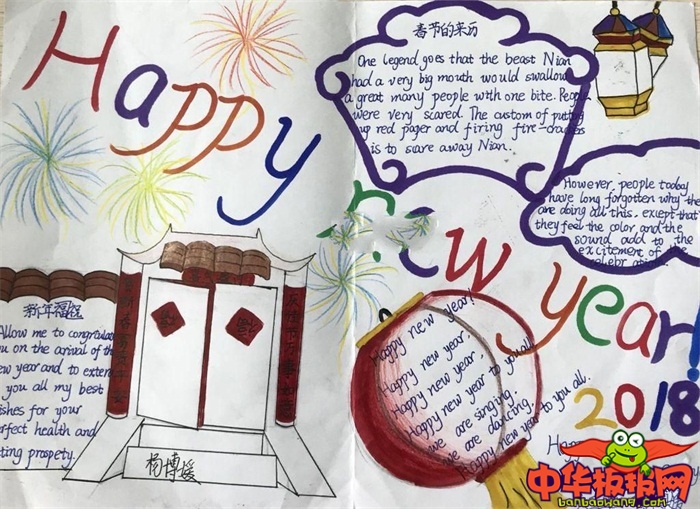 Happy
new year!
2018
春节的来历
One legend goes that the beast Nian
had a very big mouth would swallow
a great many people with one bite. People
were very scared. The custom of putting
up red paper and firing fire-crackers
is to scare away Nian.
However, people today
have long forgotten why the
are doing all this, except that
they feel the color and the
sound add to the
excitement of the
celebr
新年福
Allow me to congratula
ou on the arrival of th
ew year and to exten
you all my best
ishes for your
rfect health and
ting prospety.
杨博媛
Happy new year!
Happy new year,
Happy new year,
Happy new year to you all
we are singing,
we are dancing.
Happy new year to you all.
中华板报网
banbaowang.com